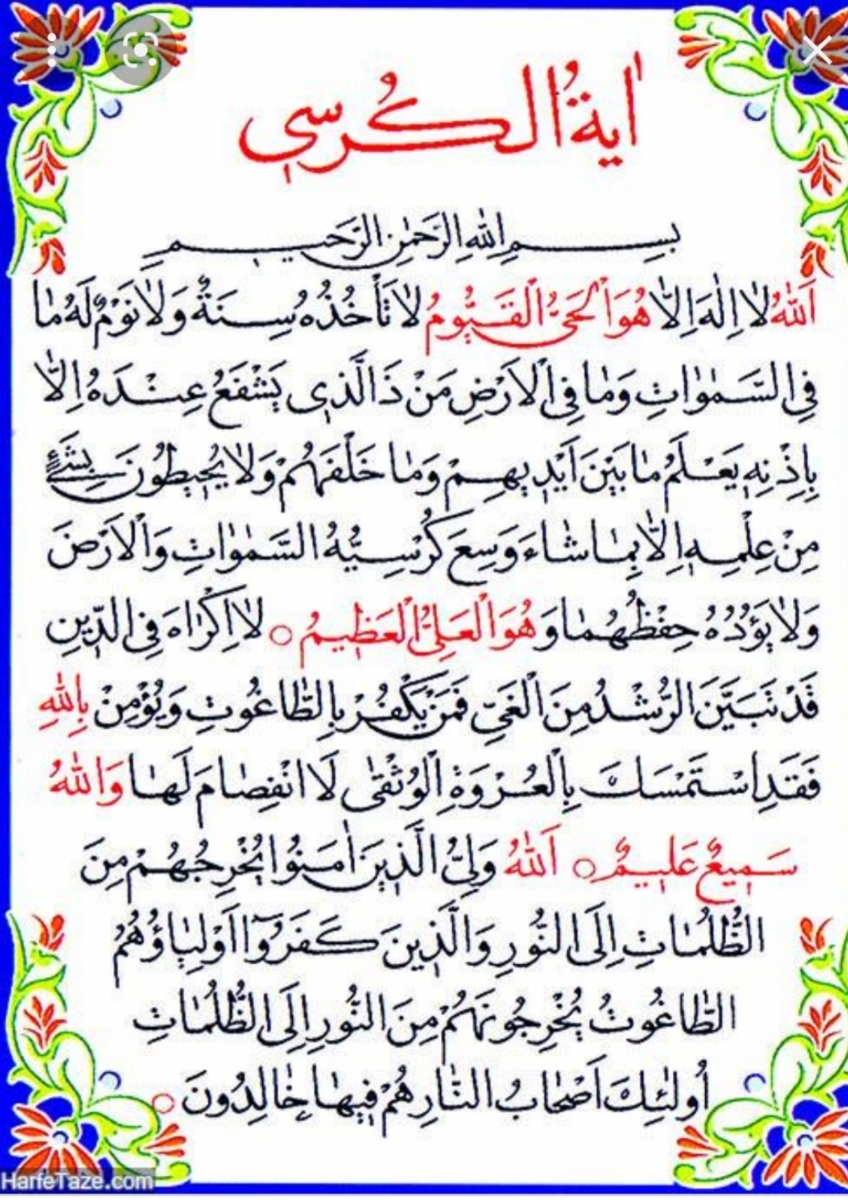 اٰيةُ الكُرسي
بِسمِ اللهِ الرَّحمٰنِ الرَّحيم
اَللهُ لا اِلٰهَ اِلَّا هُوَ الْحَيُّ الْقَيُّومُ لا تَأْخُذُهُ سِنَةٌ وَلا نَوْمٌ لَهُ مٰا
فِي السَّمٰوٰاتِ وَمٰا فِي الْاَرْضِ مَنْ ذَا الَّذي يَشْفَعُ عِنْدَهُ اِلّٰا
بِاِذْنِهِ يَعْلَمُ مٰا بَيْنَ اَيْديهِمْ وَمٰا خَلْفَهُمْ وَلا يُحيطُونَ بِشَيْءٍ
مِنْ عِلْمِهِ اِلّٰا بِمٰا شٰاءَ وَسِعَ كُرْسِيُّهُ السَّمٰوٰاتِ وَالْاَرْضَ
وَلا يَؤُدُهُ حِفْظُهُمٰا وَ هُوَ الْعَلِيُّ الْعَظيمُ ○ لا اِكْرٰاهَ فِي الدّينِ
قَدْ تَبَيَّنَ الرُّشْدُ مِنَ الْغَيِّ فَمَنْ يَكْفُرْ بِالطّٰاغُوتِ وَيُؤْمِنْ بِاللهِ
فَقَدِ اسْتَمْسَكَ بِالْعُرْوَةِ الْوُثْقٰى لَا انْفِصٰامَ لَهٰا وَاللهُ
سَميعٌ عَليمٌ ○ اَللهُ وَلِيُّ الَّذينَ اٰمَنُوا يُخْرِجُهُمْ مِنَ
الظُّلُمٰاتِ اِلَى النُّورِ وَالَّذينَ كَفَرُوٓا اَوْلِيٰاؤُهُمُ
الطّٰاغُوتُ يُخْرِجُونَهُمْ مِنَ النُّورِ اِلَى الظُّلُمٰاتِ
اُولٰئِكَ اَصْحٰابُ النّٰارِ هُمْ فيهٰا خٰالِدُونَ ○
HarfeTaze.com